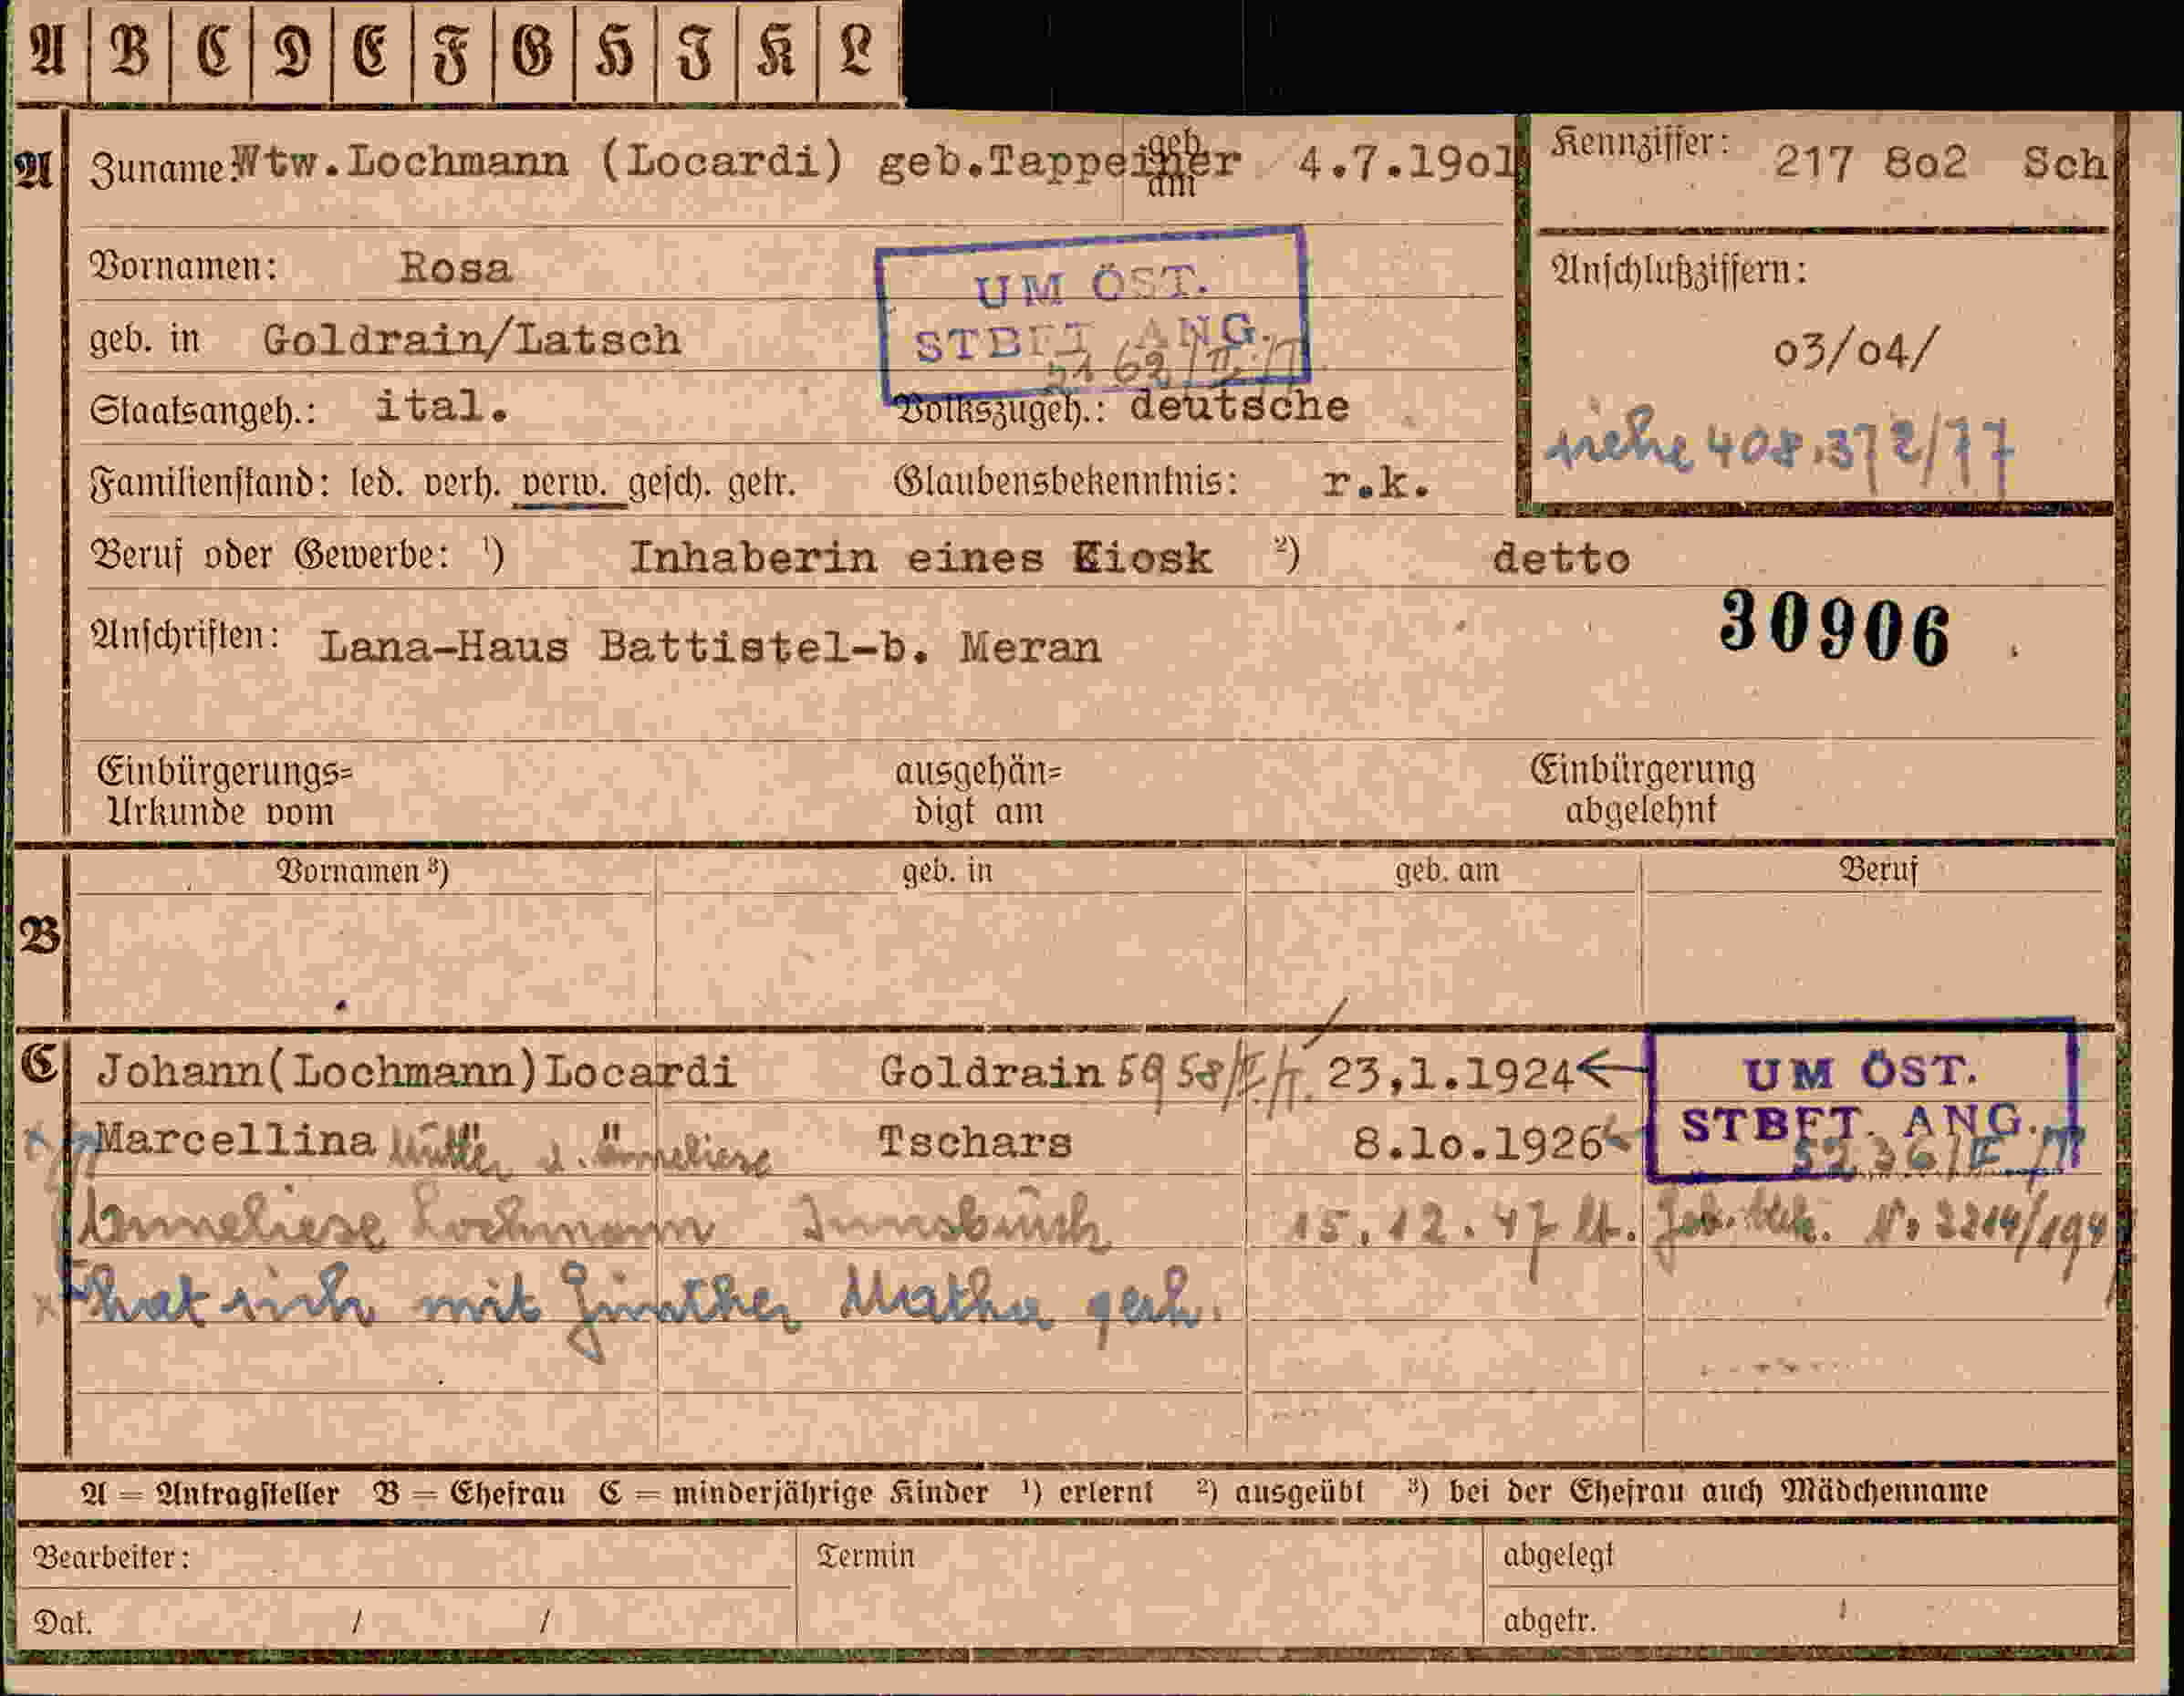 A B C D E F G H I K L
A Zuname: Wtw.Lochmann (Locardi) geb.Tappeiner geb. am 4.7.19o1
Kennziffer: 217 8o2 Sch
Vornamen: Rosa
UM ÖST.
STBFT ANG.
geb. in Goldrain/Latsch
Anschlußziffern:
o3/o4/
siehe 408.372/77
Staatsangeh.: ital. Volkszugeh.: deutsche
Familienstand: led. verh. verw. gesch. getr. Glaubensbekenntnis: r.k.
Beruf oder Gewerbe: ¹) Inhaberin eines Kiosk ²) detto
Anschriften: Lana-Haus Battistel-b. Meran
30906
Einbürgerungs= ausgehän= Einbürgerung
Urkunde vom digt am abgelehnt
Vornamen ³) geb. in geb. am Beruf
B
C Johann(Lochmann)Locardi Goldrain 5958/II/T. 23,1.1924
UM ÖST.
STBFT. ANG.
5236/II/T
Marcellina " Mutter d. " Anneliese Tschars 8.1o.1926
Anneliese Lochmann Innsbruck 15.12.47 lt. Geb. Urk. Nr. 2214/194
hat sich mit Günther Matha geh.
A = Antragsteller B = Ehefrau C = minderjährige Kinder ¹) erlernt ²) ausgeübt ³) bei der Ehefrau auch Mädchenname
Bearbeiter: Termin abgelegt
Dat. / / abgetr.